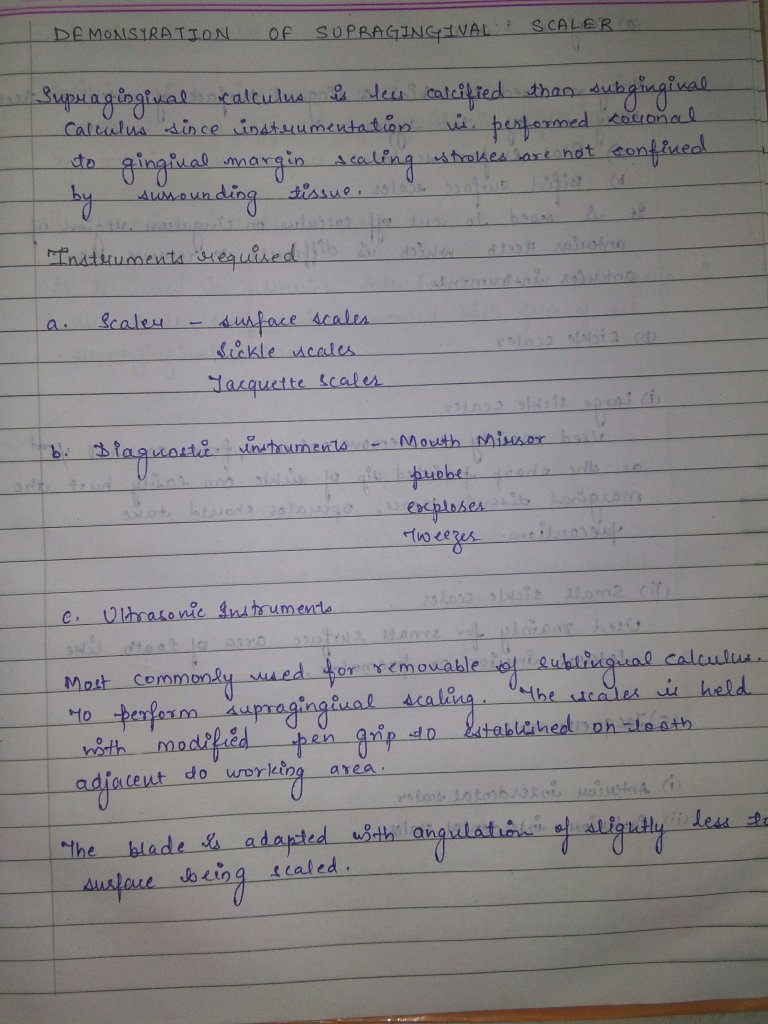 DEMONSYRATION OF SOPRAGINGIVAL SCALER
Supragingival calculus is less calcified than subgingival
Calculus since instrumentation is performed coronal
to gingival margin scaling strokes are not confined
by surrounding tissue.
Instruments required
a. Scaler - surface scaler
Sickle scaler
Jacquette scaler
b. Diagnostic instruments - Mouth Mirror
probe
explorer
Tweezer
c. Ultrasonic Instruments
Most commonly used for removable of sublingual calculus.
To perform supragingival scaling. The scaler is held
with modified pen grip to established on tooth
adjacent to working area.
The blade is adapted with angulation of slightly less to
surface being scaled.